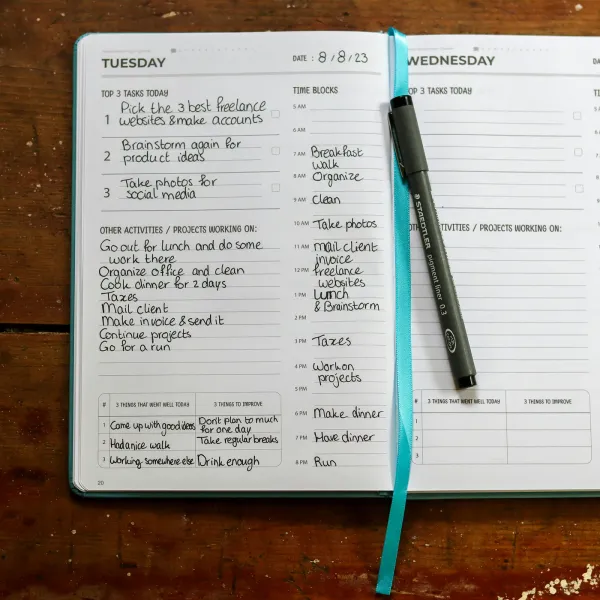 TUESDAY
DATE : 8/8/23
TOP 3 TASKS TODAY
1 Pick the 3 best freelance
websites & make accounts
2 Brainstorm again for
product ideas
3 Take photos for
social media
OTHER ACTIVITIES / PROJECTS WORKING ON:
Go out for lunch and do some
work there
Organize office and clean
Cook dinner for 2 days
Taxes
Mail client
Make invoice & send it
Continue projects
Go for a run
# 3 THINGS THAT WENT WELL TODAY 3 THINGS TO IMPROVE
1 Came up with good ideas Don't plan to much
for one day
2 Had a nice walk Take regular breaks
3 Working somewhere else Drink enough
20
TIME BLOCKS
5 AM
6 AM
7 AM Breakfast
walk
8 AM Organize
9 AM Clean
10 AM Take photos
11 AM Mail client
invoice
12 PM freelance
websites
1 PM Lunch
& Brainstorm
2 PM
3 PM Taxes
4 PM Work on
projects
5 PM
6 PM Make dinner
7 PM Have dinner
8 PM Run
WEDNESDAY
DA
OP 3 TASKS TODAY
TI
OTH TIVITIES / PROJECTS WORKING ON:
# 3 THINGS THAT WENT WELL TODAY 3 THINGS TO IMPROVE
1
2
3
STAEDTLER pigment liner 0.3